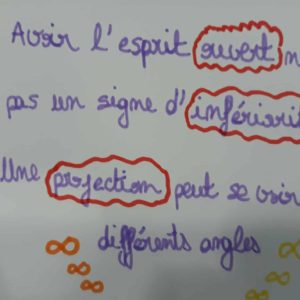 Avoir l'esprit ouvert n
pas un signe d'infériorit
Une projection peut se voir
différents angles